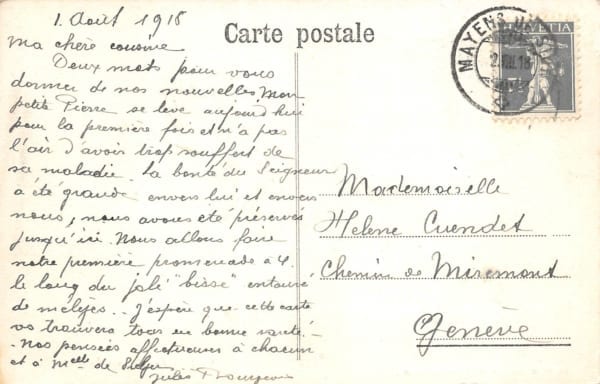 1. Août 1918
Carte postale
MAYENS
HELVETIA
Ma chère cousine
Deux mots pour vous
donner de nos nouvelles Mon
petit Pierre se lève aujourd'hui
pour la première fois et n'a pas
l'air d'avoir trop souffert de
sa maladie. La bonté du Seigneur
a été grande envers lui et envers
nous; nous avons été préservés
jusqu'ici. Nous allons faire
notre première promenade à 4.
le long du joli "bisse" entouré
de mélèzes.. J'espère que cette carte
vs trouvera tous en bonne santé.-
- Nos pensées affectueuses à chacun
et à Melle de
Jules
Mademoiselle
Helene Cuendet
Chemin de Miremont
Genève